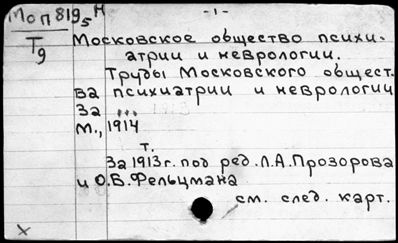 МоП819₅ Н
- 1 -
Т₉
Московское общество психи-
атрии и неврологии.
Труды Московского общест-
ва психиатрии и неврологии
за ...
М., 1914
т.
За 1913 г. под ред. Л.А.Прозорова
и О.Б.Фельцмана
см. след. карт.
х